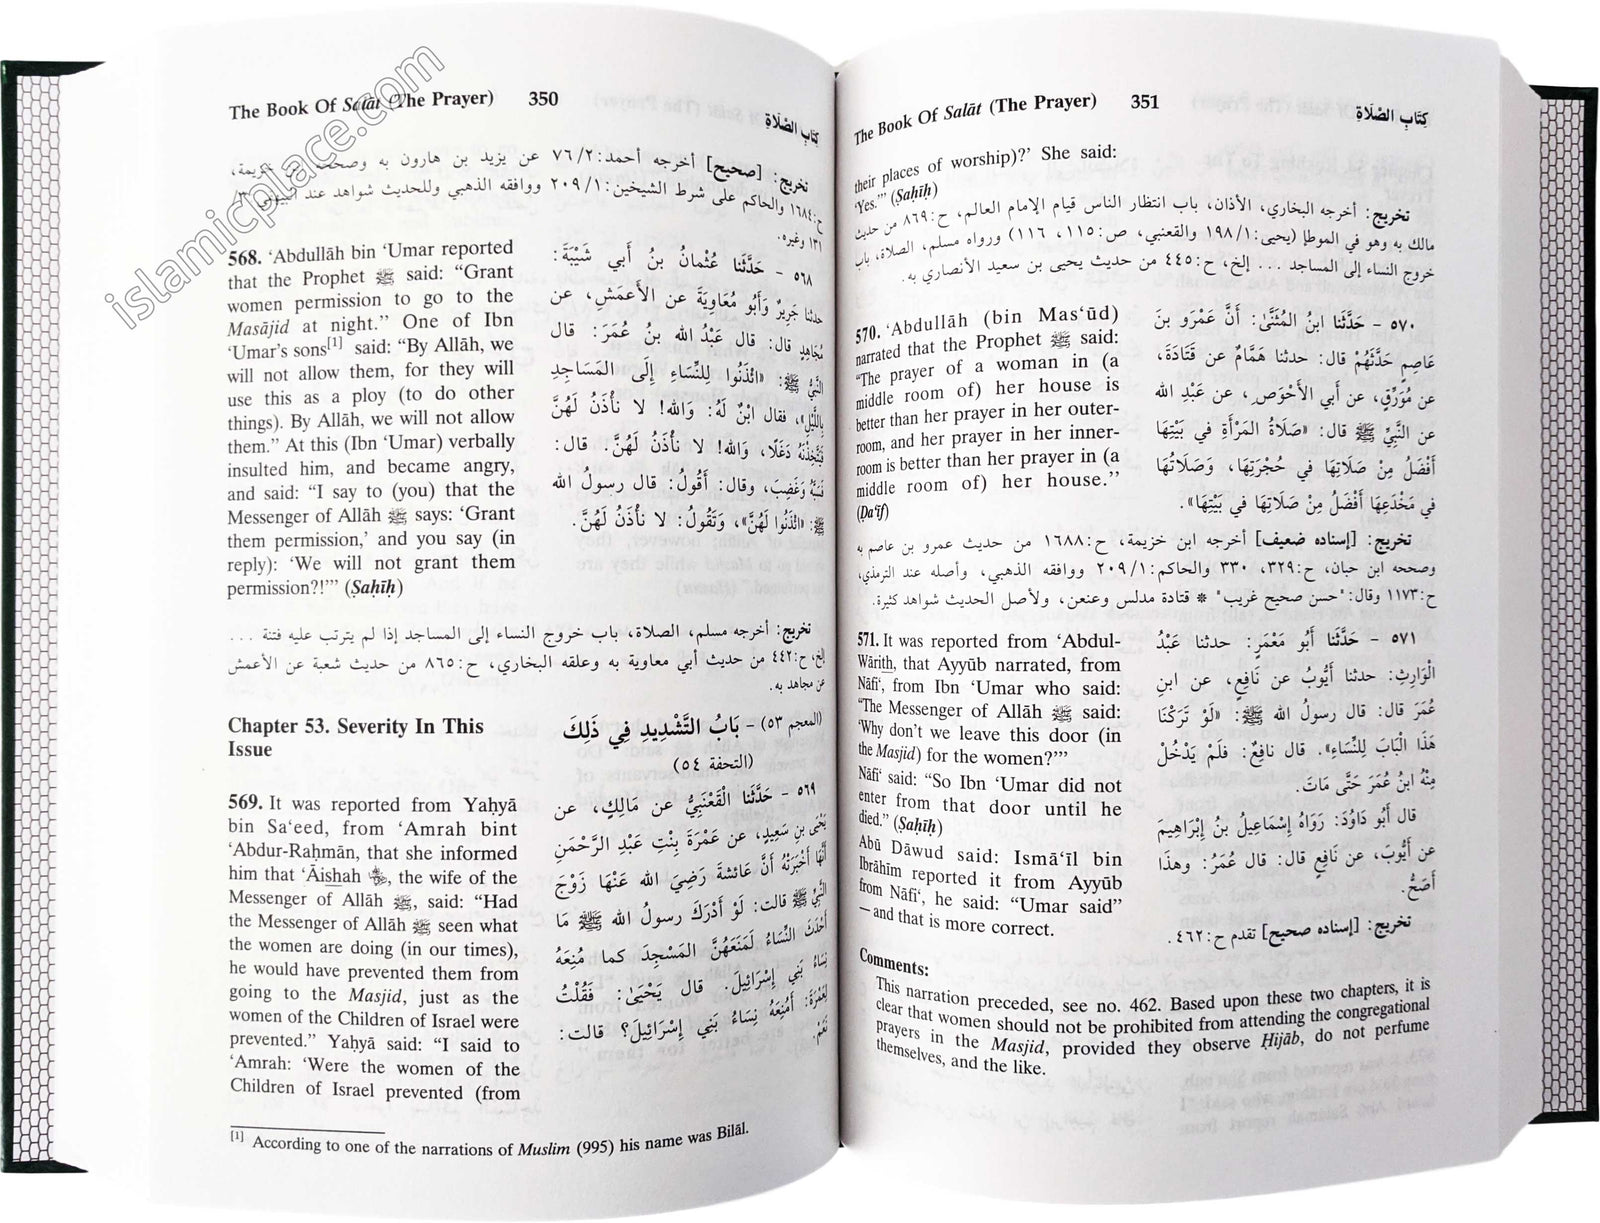 islamicplace.com
The Book Of Salāt (The Prayer) 350 كِتَابِ الصَّلَاةِ
تخريج: [صحيح] أخرجه أحمد: ٧٦/٢ عن يزيد بن هارون به وصححه ابن خزيمة،
ح: ١٦٨٤ والحاكم على شرط الشيخين: ٢٠٩/١ ووافقه الذهبي وللحديث شواهد عند البيهقي: ٣/
١٣١ وغيره.
568. ‘Abdullāh bin ‘Umar reported
that the Prophet ﷺ said: “Grant
women permission to go to the
Masājid at night.” One of Ibn
‘Umar’s sons[1] said: “By Allāh, we
will not allow them, for they will
use this as a ploy (to do other
things). By Allāh, we will not allow
them.” At this (Ibn ‘Umar) verbally
insulted him, and became angry,
and said: “I say to (you) that the
Messenger of Allāh ﷺ says: ‘Grant
them permission,’ and you say (in
reply): ‘We will not grant them
permission?!’” (Ṣaḥīḥ)
٥٦٨ - حَدَّثَنا عُثْمانُ بنُ أبي شَيْبَةَ:
حدثنا جَرِيرٌ وَأَبُو مُعَاوِيَةَ عن الأَعمَشِ، عن
مُجَاهِدٍ قال: قال عَبْدُ الله بنُ عُمَرَ: قال
النَّبِيُّ ﷺ: «ائْذَنُوا لِلنِّسَاءِ إِلَى المَسَاجِدِ
بِاللَّيْلِ»، فقال ابْنٌ لَهُ: وَالله! لا نَأْذَنُ لَهُنَّ
فَيَتَّخِذْنَهُ دَغَلًا، وَالله! لا نَأْذَنُ لَهُنَّ. قال:
فَسَبَّهُ وَغَضِبَ، وقال: أَقُولُ: قال رسولُ الله
ﷺ: «ائْذَنُوا لَهُنَّ»، وَتَقُولُ: لا نَأْذَنُ لَهُنَّ.
تخريج: أخرجه مسلم، الصلاة، باب خروج النساء إلى المساجد إذا لم يترتب عليه فتنة ...
إلخ، ح: ٤٤٢ من حديث أبي معاوية به وعلقه البخاري، ح: ٨٦٥ من حديث شعبة عن الأعمش
عن مجاهد به.
Chapter 53. Severity In This
Issue
(المعجم ٥٣) - بَابُ التَّشْدِيدِ فِي ذَلِكَ
(التحفة ٥٤)
569. It was reported from Yaḥyā
bin Sa‘eed, from ‘Amrah bint
‘Abdur-Raḥmān, that she informed
him that ‘Āishah, the wife of the
Messenger of Allāh ﷺ, said: “Had
the Messenger of Allāh ﷺ seen what
the women are doing (in our times),
he would have prevented them from
going to the Masjid, just as the
women of the Children of Israel were
prevented.” Yaḥyā said: “I said to
‘Amrah: ‘Were the women of the
Children of Israel prevented (from
٥٦٩ - حَدَّثَنا الْقَعْنَبِيُّ عن مَالِكٍ، عن
يَحْيَى بنِ سَعِيدٍ، عن عَمْرَةَ بِنْتِ عَبْدِ الرَّحْمنِ
أَنَّها أَخْبَرَتْهُ أَنَّ عَائشةَ رَضِيَ الله عَنْهَا زَوْجَ
النَّبِيِّ ﷺ قالت: لَوْ أَدْرَكَ رسولُ الله ﷺ مَا
أَحْدَثَ النِّسَاءُ لَمَنَعَهُنَّ المَسْجِدَ كما مُنِعَهُ
نِسَاءُ بَني إِسْرَائِيلَ. قال يَحْيَى: فَقُلْتُ
لِعَمْرَةَ: أَمُنِعَهُ نِسَاءُ بَنِي إِسْرَائِيلَ؟ قالت:
نَعَمْ.
[1] According to one of the narrations of Muslim (995) his name was Bilāl.
The Book Of Salāt (The Prayer) 351 كِتَابِ الصَّلَاةِ
their places of worship)?’ She said:
‘Yes.’” (Ṣaḥīḥ)
تخريج: أخرجه البخاري، الأذان، باب انتظار الناس قيام الإمام العالم، ح: ٨٦٩ من حديث
مالك به وهو في الموطإ (يحيى: ١٩٨/١ والقعنبي، ص: ١١٥، ١١٦) ورواه مسلم، الصلاة، باب
خروج النساء إلى المساجد ... إلخ، ح: ٤٤٥ من حديث يحيى بن سعيد الأنصاري به.
570. ‘Abdullāh (bin Mas‘ūd)
narrated that the Prophet ﷺ said:
“The prayer of a woman in (a
middle room of) her house is
better than her prayer in her outer-
room, and her prayer in her inner-
room is better than her prayer in (a
middle room of) her house.”
(Ḍa‘īf)
٥٧٠ - حَدَّثَنا ابنُ المُثَنَّى: أَنَّ عَمْرَو بنَ
عَاصِمٍ حَدَّثَهُمْ قال: حدثنا هَمَّامٌ عن قَتَادَةَ،
عن مُوَرِّقٍ، عن أبي الأَحْوَصِ، عن عَبْدِ الله
عن النَّبِيِّ ﷺ قال: «صَلَاةُ المَرْأَةِ في بَيْتِهَا
أَفْضَلُ مِنْ صَلَاتِهَا في حُجْرَتِهَا، وَصَلَاتُهَا
في مَخْدَعِهَا أَفْضَلُ مِنْ صَلَاتِهَا في بَيْتِهَا».
تخريج: [إسناده ضعيف] أخرجه ابن خزيمة، ح: ١٦٨٨ من حديث عمرو بن عاصم به
وصححه ابن حبان، ح: ٣٢٩، ٣٣٠ والحاكم: ٢٠٩/١ ووافقه الذهبي، وأصله عند الترمذي،
ح: ١١٧٣ وقال: "حسن صحيح غريب" * قتادة مدلس وعنعن، ولأصل الحديث شواهد كثيرة.
571. It was reported from ‘Abdul-
Wārith, that Ayyūb narrated, from
Nāfi‘, from Ibn ‘Umar who said:
“The Messenger of Allāh ﷺ said:
‘Why don’t we leave this door (in
the Masjid) for the women?’”
Nāfi‘ said: “So Ibn ‘Umar did not
enter from that door until he
died.” (Ṣaḥīḥ)
Abū Dāwud said: Ismā‘īl bin
Ibrāhīm reported it from Ayyūb
from Nāfi‘, he said: “Umar said”
—and that is more correct.
٥٧١ - حَدَّثَنا أَبُو مَعْمَرٍ: حدثنا عَبْدُ
الْوَارِثِ: حدثنا أَيُّوبُ عن نَافِعٍ، عن ابنِ
عُمَرَ قال: قال رسولُ الله ﷺ: «لَوْ تَرَكْنَا
هَذَا الْبَابَ لِلنِّسَاءِ». قال نَافِعٌ: فَلَمْ يَدْخُلْ
مِنْهُ ابنُ عُمَرَ حَتَّى مَاتَ.
قال أَبُو دَاوُدَ: رَوَاهُ إِسْمَاعِيلُ بنُ إِبْرَاهِيمَ
عن أَيُّوبَ، عن نَافِعٍ قال: قال عُمَرُ: وهذَا
أَصَحُّ.
تخريج: [إسناده صحيح] تقدم ح: ٤٦٢.
Comments:
This narration preceded, see no. 462. Based upon these two chapters, it is
clear that women should not be prohibited from attending the congregational
prayers in the Masjid, provided they observe Ḥijāb, do not perfume
themselves, and the like.